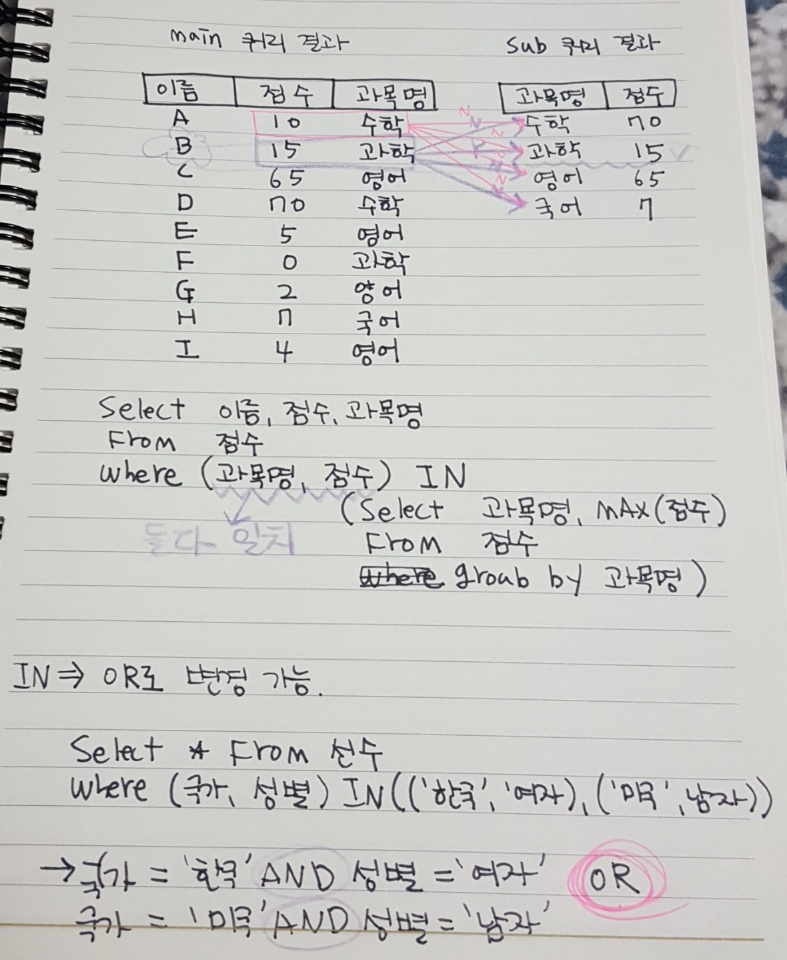 main 쿼리 결과
sub 쿼리 결과
이름 점수 과목명
과목명 점수
A 10 수학
수학 70
B 15 과학
과학 15
C 65 영어
영어 65
D 70 수학
국어 7
E 5 영어
F 0 과학
G 2 영어
H 7 국어
I 4 영어
Select 이름, 점수, 과목명
From 점수
where (과목명, 점수) IN
(Select 과목명, MAX(점수)
둘다 일치
From 점수
where groub by 과목명)
IN ⇒ OR로 변경 가능.
Select * From 선수
where (국가, 성별) IN(('한국', '여자), ('미국', 남자))
→국가 = '한국' AND 성별 = '여자' OR
국가 = '미국' AND 성별 = '남자'